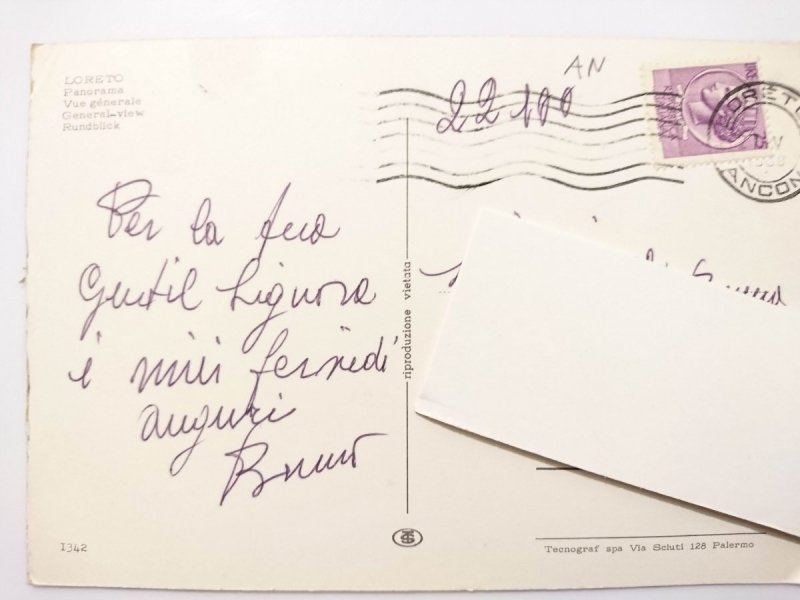 LORETO
Panorama
Vue générale
General-view
Rundblick
22100 AN
LORETO
ANCONA
Per la sua
Gentil Signora
i miei fervidi
auguri
Bruno
riproduzione vietata
1342
Tecnograf spa Via Sciuti 128 Palermo